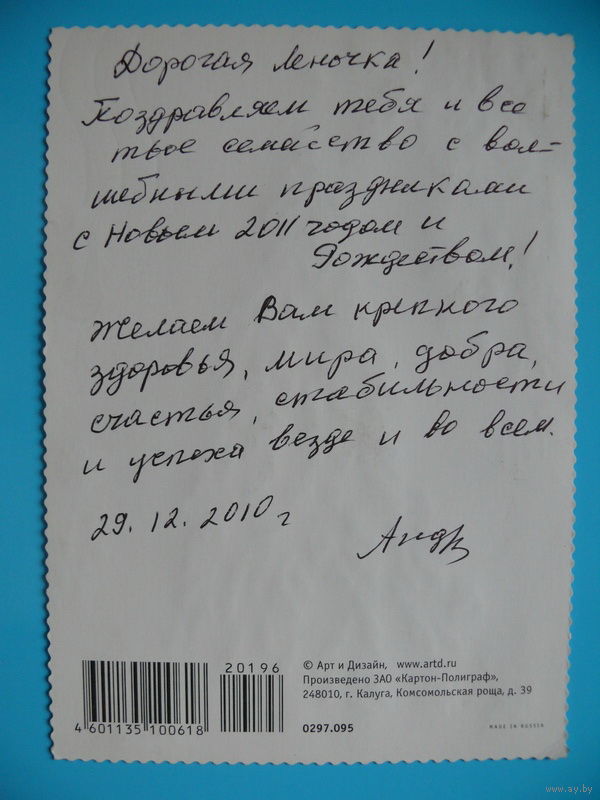 Дорогая Леночка!
Поздравляем тебя и все
твое семейство с вол-
шебными праздниками
с Новым 2011 годом и
Рождеством!
Желаем Вам крепкого
здоровья, мира, добра,
счастья, стабильности
и успеха везде и во всем.
29.12.2010 г
20196
4 601135 100618
© Арт и Дизайн, www.artd.ru
Произведено ЗАО «Картон-Полиграф»,
248010, г. Калуга, Комсомольская роща, д. 39
0297.095
MADE IN RUSSIA
www.ay.by